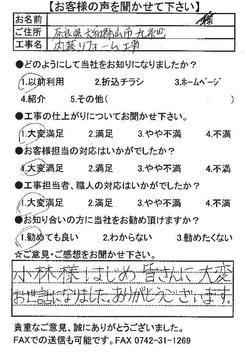 【お客様の声を聞かせて下さい】
お名前 様
ご住所 奈良県大和郡山市九条町
工事名 内装リフォーム工事
●どのようにして当社をお知りになりましたか?
1.以前利用 2.折込チラシ 3.ホームページ
4.紹介 5.その他( )
●工事の仕上がりについてお聞かせ下さい。
1.大変満足 2.満足 3.やや不満 4.不満
●お客様担当の対応はいかがでしたか?
1.大変満足 2.満足 3.やや不満 4.不満
●工事担当者、職人の対応はいかがでしたか?
1.大変満足 2.満足 3.やや不満 4.不満
●お知り合いの方に当社をお勧め頂けますか?
1.勧めても良い 2.わからない 3.勧めたくない
☆ご意見・ご感想をお聞かせ下さい。
小林様はじめ皆さんに大変
お世話になりました。ありがとうございます。
貴重なご意見、誠にありがとうございました。
FAXでの送信も可能です。 FAX 0742-31-1269